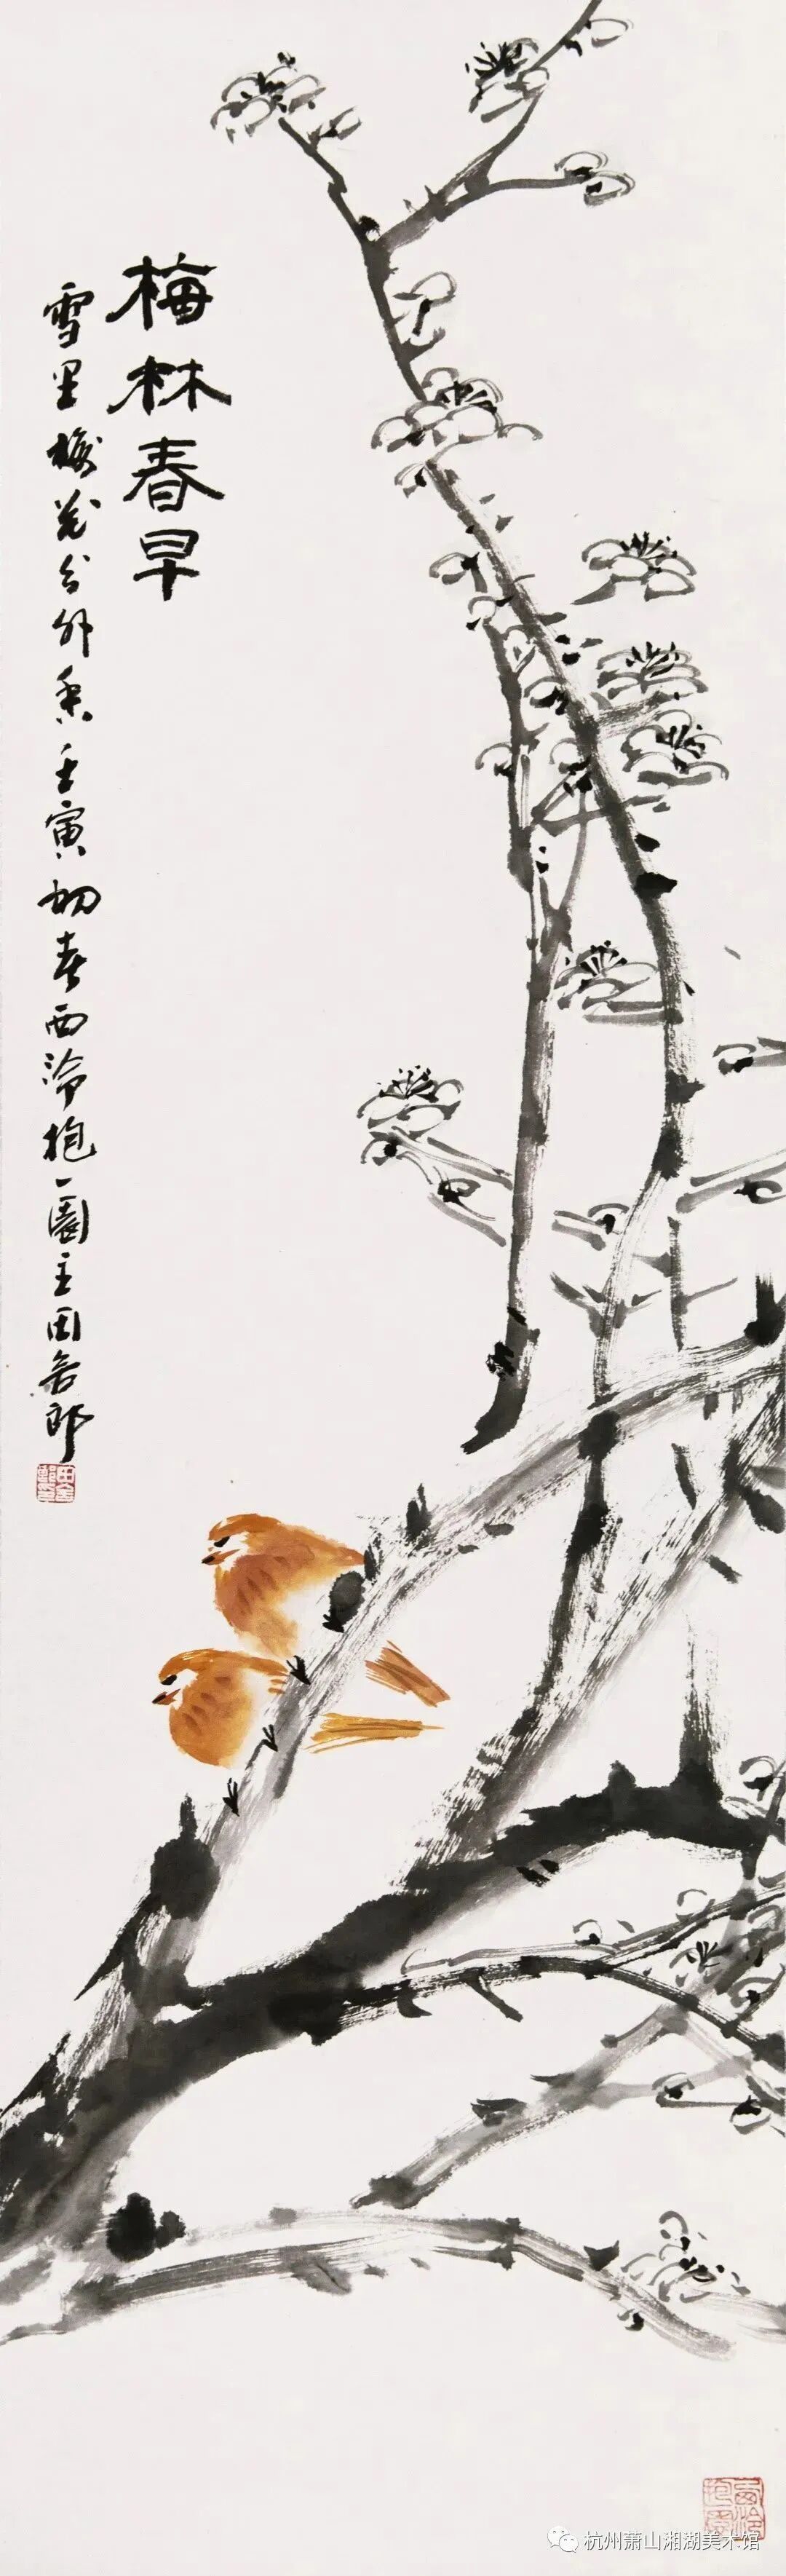 梅林春早
雪里梅花分外香壬寅初春西泠抱一園主田舍郎
杭州萧山湘湖美术馆